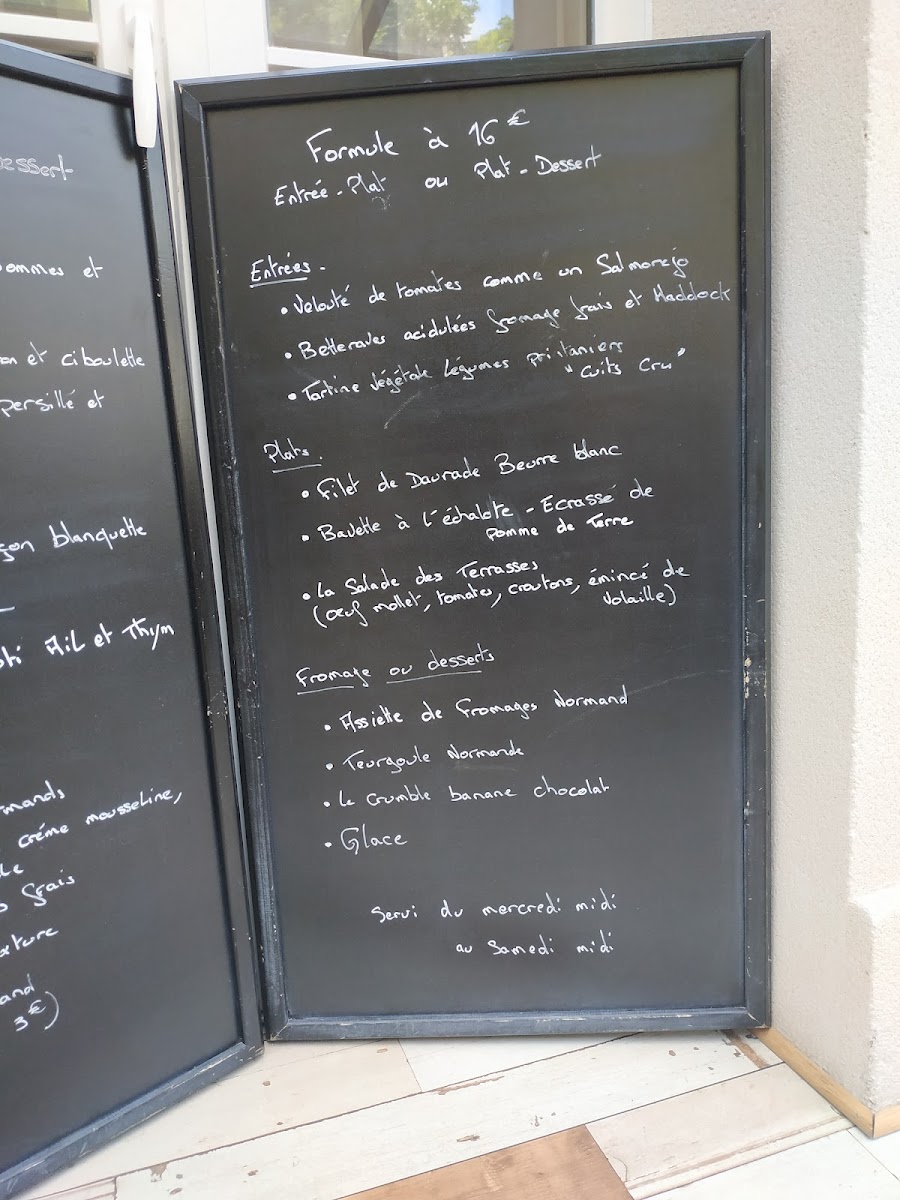 Dessert
pommes et
et ciboulette
persillé et
blanquette
Ail et Thym
créme mousseline,
frais
3€)
Formule à 16€
Entrée - Plat ou Plat - Dessert
Entrées.
• Velouté de tomates comme un Salmorejo
• Betteraves acidulées fromage frais et Haddock
• Tartine végétale légumes printaniers
"Cuits Cru"
Plats.
• Filet de Daurade Beurre blanc
• Bavette à l'échalote - Ecrassé de
pomme de Terre
• La Salade des Terrasses
(œuf mollet, tomates, croutons, émincé de
volaille)
Fromage ou desserts
• Assiette de Fromages Normand
• Teurgoule Normande
• Le crumble banane chocolat
• Glace
Servi du mercredi midi
au Samedi midi